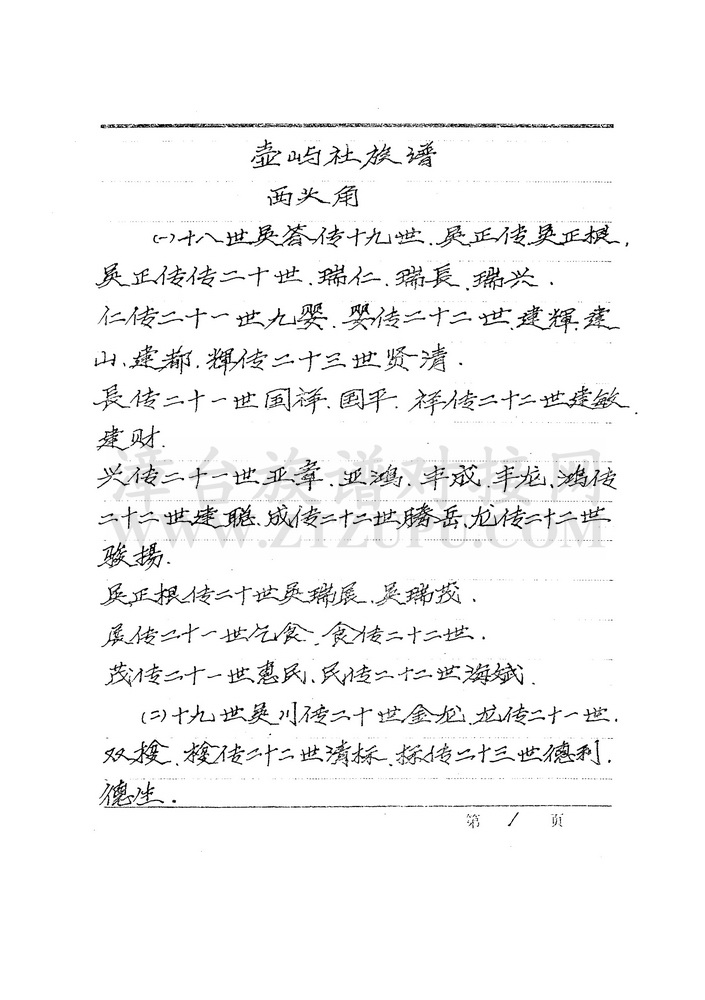 壶屿社族谱
西头角
㈠十八世吴答传十九世.吴正传吴正根,
吴正传传二十世.瑞仁.瑞長.瑞兴.
仁传二十一世九婴.婴传二十二世.建輝.建
山.建都.輝传二十三世贤清.
長传二十一世国祥.国平.祥传二十二世建敏.
建财.
兴传二十一世亚章.亚鸿.丰成.丰龙.鸿传
二十二世建聪.成传二十二世腾岳.龙传二十二世
骏揚.
吴正根传二十世吴瑞展.吴瑞茂.
展传二十一世乞食.食传二十二世.
茂传二十一世惠民.民传二十二世海斌.
㈡十九世吴川传二十世金龙.龙传二十一世.
双 传二十二世清标.标传二十三世德利.
德生.
第 1 页
漳台族谱对接网
WWW.ZTZUPU.COM